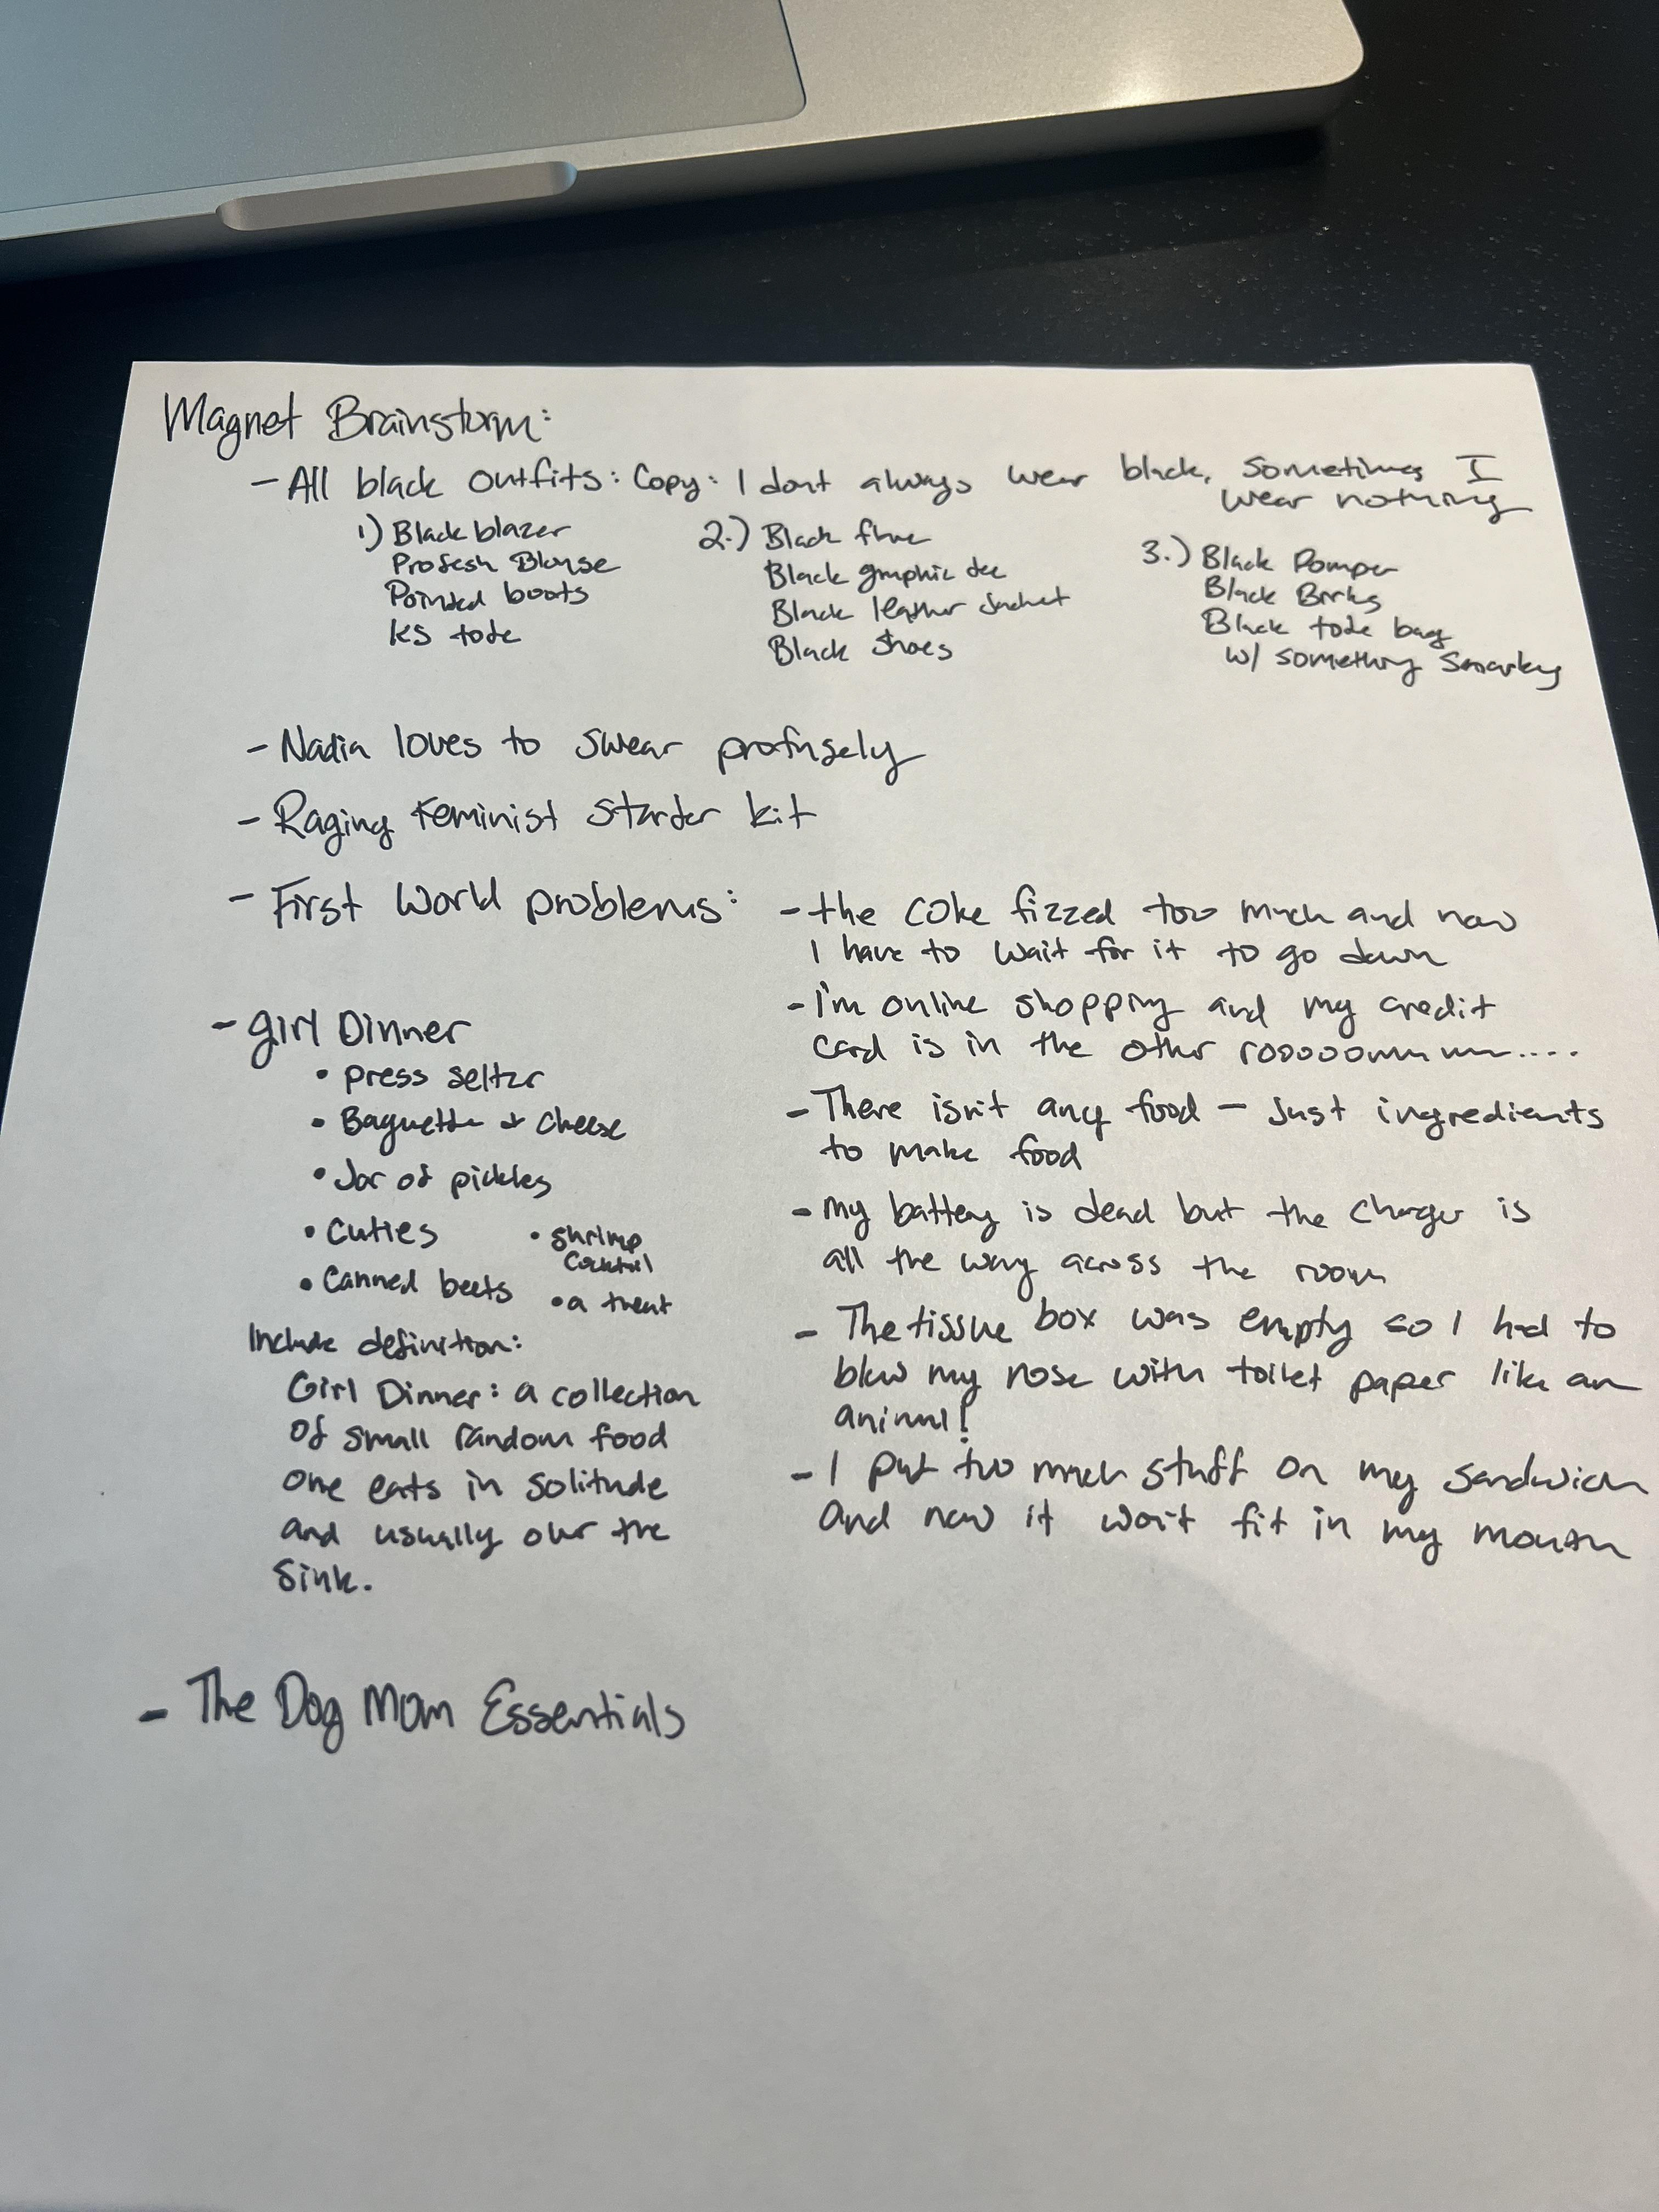 Magnet Brainstorm:
- All black outfits: Copy: I dont always wear black, sometimes I
wear nothing
1) Black blazer
Profesh Blouse
Pointed boots
KS tote
2.) Black
Black graphic tee
Black leather Jacket
Black Shoes
3.) Black Romper
Black Birks
Black tote bag
w/ something Snarky
- Nadia loves to swear profusely
- Raging Feminist Starter kit
- First World problems:
- the Coke fizzed too much and now
I have to wait for it to go down
- I'm online shopping and my credit
card is in the other rooooommmm....
- There isn't any food - Just ingredients
to make food
- my battery is dead but the charger is
all the way across the room
- The tissue box was empty so I had to
blow my nose with toilet paper like an
animal!
- I put too much stuff on my sandwich
and now it won't fit in my mouth
- girl Dinner
• press seltzer
• Baguette & Cheese
• Jar of pickles
• Cuties
• Canned beets
• shrimp
Cocktail
• a treat
Include definition:
Girl Dinner: a collection
of small random food
one eats in solitude
and usually over the
Sink.
- The Dog Mom Essentials